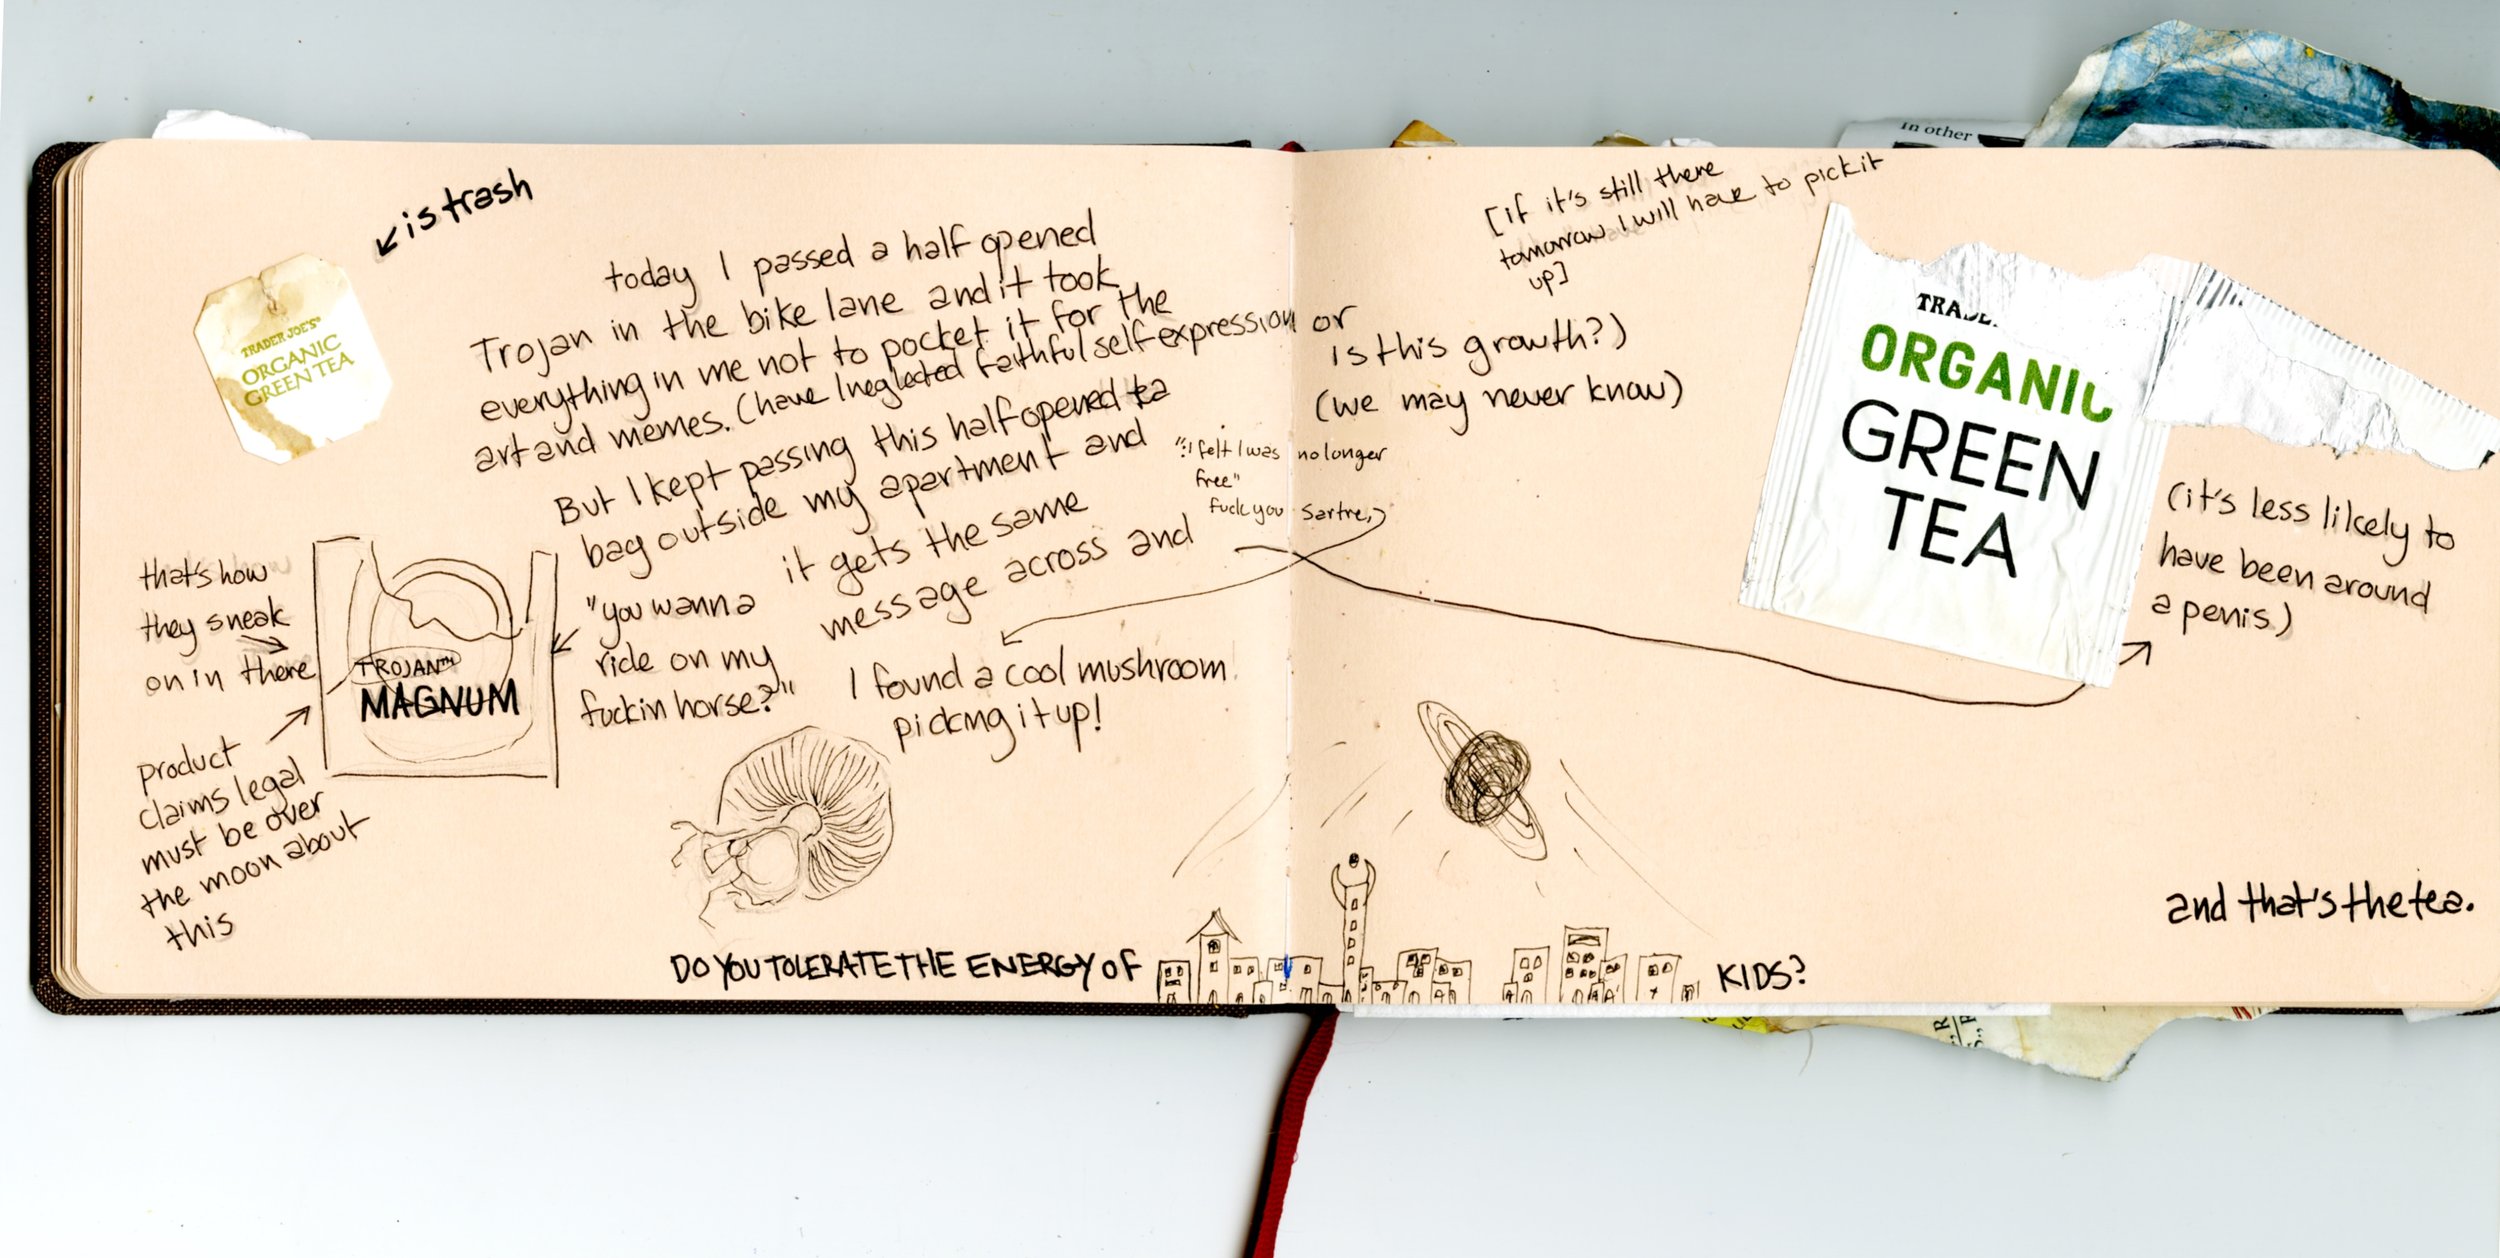 is trash
TRADER JOE'S®
ORGANIC
GREEN TEA
today I passed a half opened
Trojan in the bike lane and it took
everything in me not to pocket it for the
art and memes. (have I neglected faithful self expression or
is this growth?)
(we may never know)
[if it's still there
tomorrow I will have to pick it
up]
But I kept passing this half opened tea
bag outside my apartment and
it gets the same
message across and
"I felt I was no longer
free"
fuck you Sartre,
I found a cool mushroom
picking it up!
that's how
they sneak
on in there
TROJAN™
MAGNUM
"you wanna
ride on my
fuckin horse?"
product
claims legal
must be over
the moon about
this
In other
ORGANIC
GREEN
TEA
(it's less likely to
have been around
a penis)
and that's the tea.
DO YOU TOLERATE THE ENERGY OF KIDS?